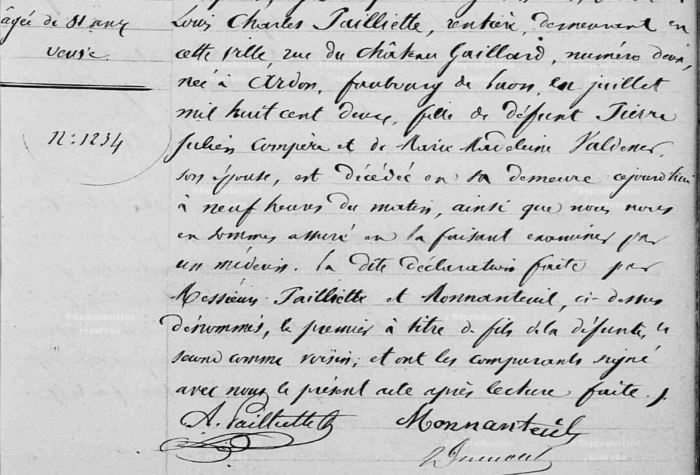 âgée de 81 ans
veuve.
N: 1234
Louis Charles Tailliette, rentière, demeurant en
cette ville, rue du château Gaillard, numéro deux,
née à Ardon, faubourg de Laon, en juillet
mil huit cent deux, fille de défunt Pierre
Julien Compère et de Marie Madeleine
son épouse, est décédée en sa demeure cejourd'hui
à neuf heures du matin, ainsi que nous nous
en sommes assuré en la faisant examiner par
un médecin. La dite déclaration faite par
Messieurs Tailliette et Monnanteuil, ci-dessus
dénommés, le premier à titre de fils de la défunte, le
second comme voisin; et ont les comparants signé
avec nous le présent acte après lecture faite./.
A. Tailliette Monnanteuil